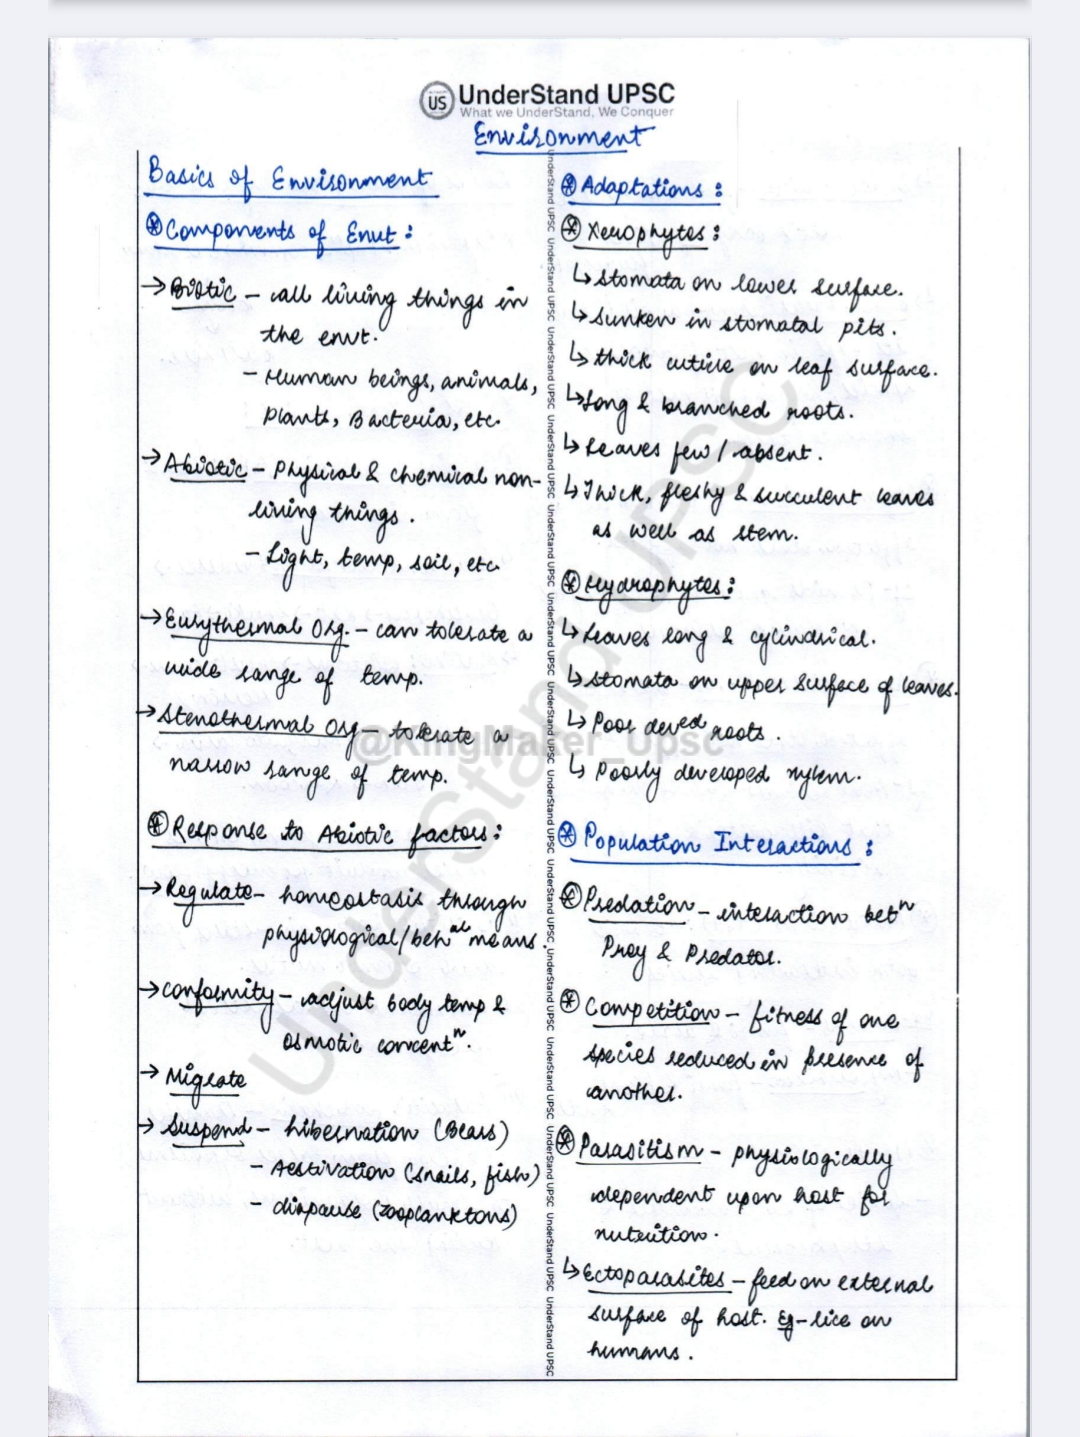 US UnderStand UPSC
What we UnderStand, We Conquer
Environment
Basics of Environment
⊛ Components of Envt :
→ Biotic – all living things in
the envt.
– Human beings, animals,
Plants, Bacteria, etc.
→ Abiotic – Physical & chemical non-
living things.
– Light, temp, soil, etc.
→ Eurythermal Org. – can tolerate a
wide range of temp.
→ Stenothermal Org – tolerate a
narrow range of temp.
⊛ Response to Abiotic factors :
→ Regulate – homeostasis through
physiological/behᵃˡ means.
→ Conformity – adjust body temp &
osmotic concentⁿ.
→ Migrate
→ Suspend – hibernation (Bears)
– Aestivation (snails, fish)
– diapause (zooplanktons)
⊛ Adaptations :
⊛ Xerophytes :
↳ stomata on lower surface.
↳ sunken in stomatal pits.
↳ thick cuticle on leaf surface.
↳ Long & branched roots.
↳ Leaves few / absent.
↳ Thick, fleshy & succulent leaves
as well as stem.
⊛ Hydrophytes :
↳ Leaves long & cylindrical.
↳ stomata on upper surface of leaves.
↳ Poor devᵉᵈ roots.
↳ Poorly developed xylem.
⊛ Population Interactions :
⊛ Predation – interaction betⁿ
Prey & Predator.
⊛ Competition – fitness of one
species reduced in presence of
another.
⊛ Parasitism – physiologically
dependent upon host for
nutrition.
↳ Ectoparasites – feed on external
surface of host. Eg – lice on
humans.
UnderStand UPSC UnderStand UPSC UnderStand UPSC UnderStand UPSC UnderStand UPSC UnderStand UPSC UnderStand UPSC UnderStand UPSC UnderStand UPSC UnderStand UPSC UnderStand UPSC UnderStand UPSC UnderStand UPSC UnderStand UPSC
UnderStand UPSC
@KingMaker_Upsc